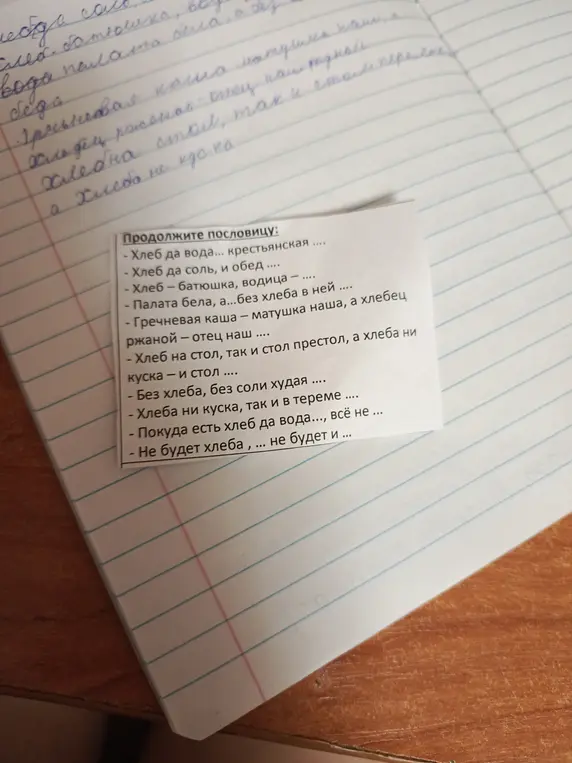 хлеб батюшка, вод
вода палата бела, а без
беда
Гречневая каша матушка наша, а
хлебец ржаной отец наш родной
Хлеб на стол, так и стол престол
а хлеба ни куска
Продолжите пословицу:
- Хлеб да вода... крестьянская ....
- Хлеб да соль, и обед ....
- Хлеб – батюшка, водица – ....
- Палата бела, а...без хлеба в ней ....
- Гречневая каша – матушка наша, а хлебец
ржаной – отец наш ....
- Хлеб на стол, так и стол престол, а хлеба ни
куска – и стол ....
- Без хлеба, без соли худая ....
- Хлеба ни куска, так и в тереме ....
- Покуда есть хлеб да вода..., всё не ...
- Не будет хлеба , ... не будет и ...